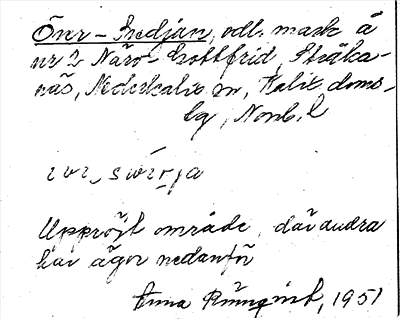 Över-Svedjan, odl. mark å
nr 2 Närv Gottfrid, Stråka-
näs, Nederkalix sn, Kalix doms-
, Norrb. l
Uppröjt område, där andra
har ägor nedanför
Anna, 1951